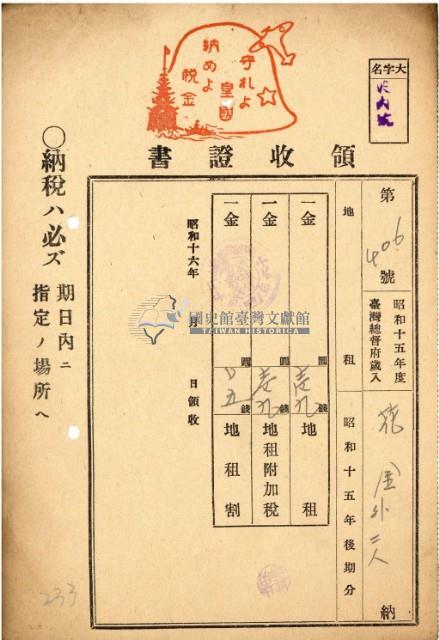 守れよ
皇國
納めよ
税金
大字名
領收證書
第406號
昭和十五年度
臺灣總督府歲入
地租
昭和十五年後期分
金外二人
納
一金 圓壱九錢 地租
一金 圓壱九錢 地租附加税
一金 圓 五錢 地租割
昭和十六年 月 日領收
〇納税ハ必ズ
期日内ニ
指定ノ場所ヘ
國史館臺灣文獻館
TAIWAN HISTORICA
233